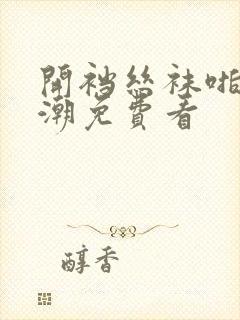 開襠絲袜啪
潮免費看
醇香